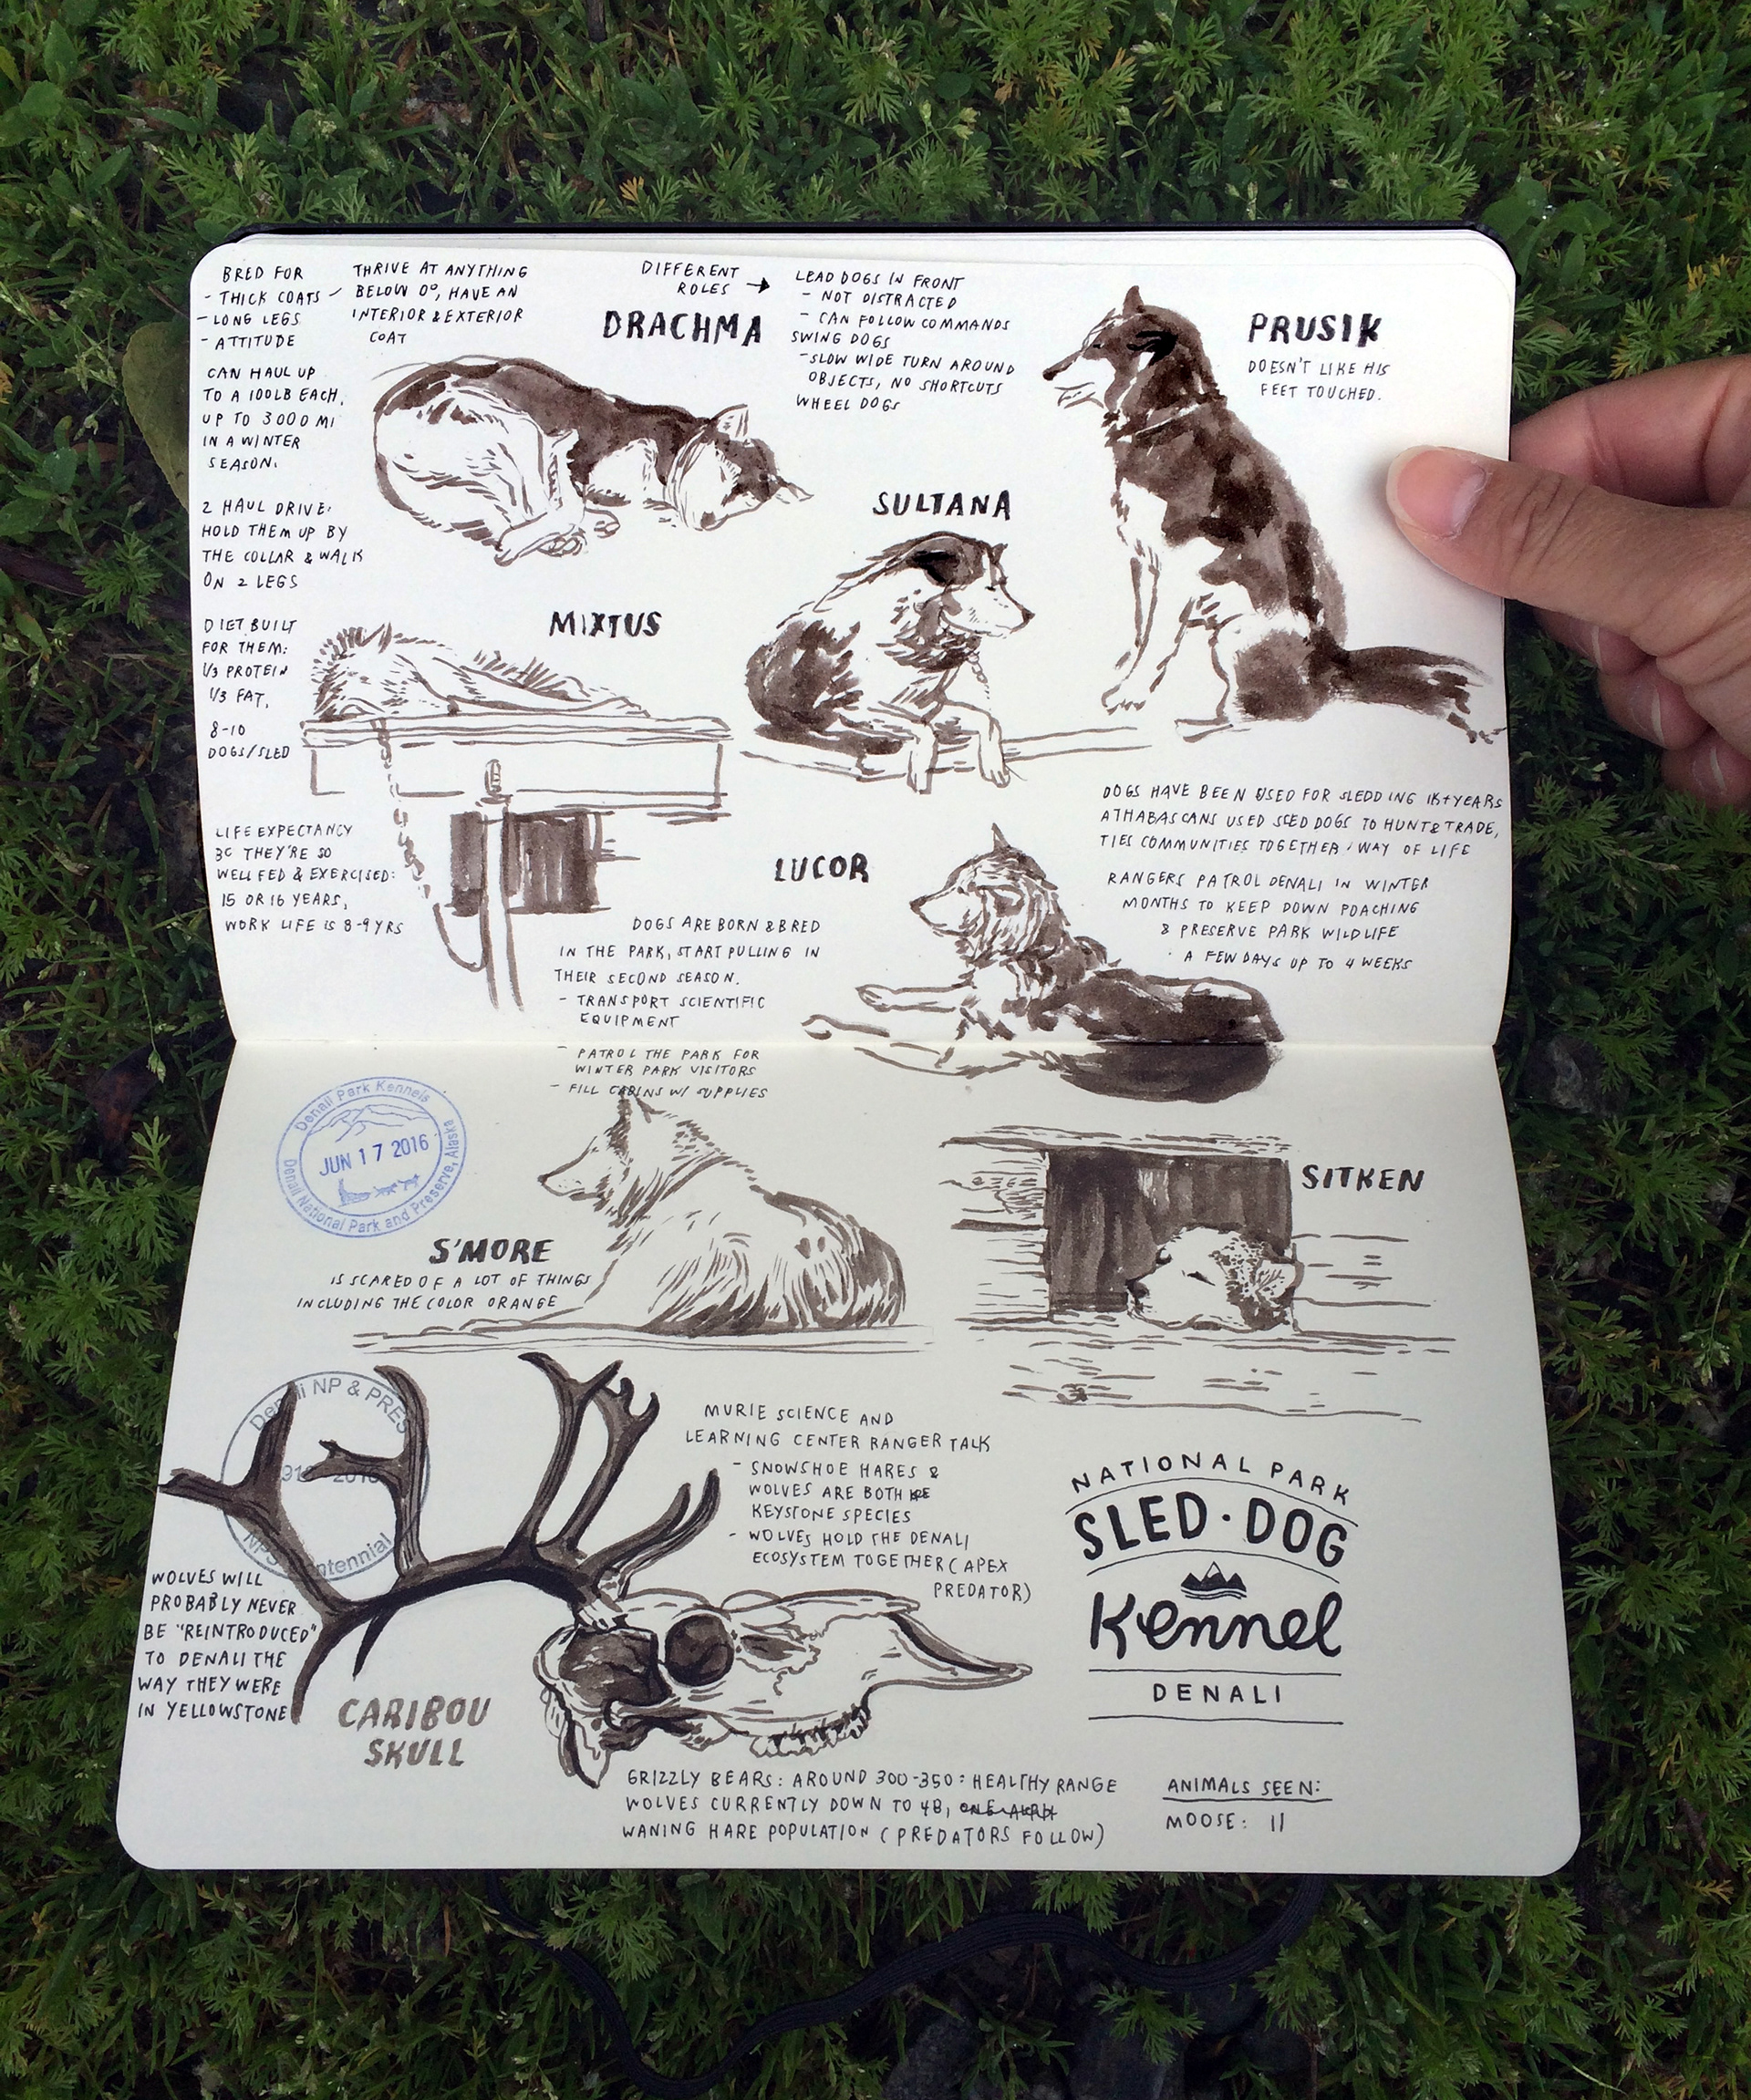 BRED FOR
- THICK COATS -
- LONG LEGS
- ATTITUDE
THRIVE AT ANYTHING
BELOW 0°, HAVE AN
INTERIOR & EXTERIOR
COAT
CAN HAUL UP
TO A 100LB EACH,
UP TO 3000 MI
IN A WINTER
SEASON.
2 HAUL DRIVE:
HOLD THEM UP BY
THE COLLAR & WALK
ON 2 LEGS
DIET BUILT
FOR THEM:
1/3 PROTEIN
1/3 FAT,
8-10
DOGS/SLED
LIFE EXPECTANCY
BC THEY'RE SO
WELL FED & EXERCISED:
15 OR 16 YEARS,
WORK LIFE IS 8-9 YRS
DRACHMA
DIFFERENT
ROLES →
LEAD DOGS IN FRONT
- NOT DISTRACTED
- CAN FOLLOW COMMANDS
SWING DOGS
- SLOW WIDE TURN AROUND
OBJECTS, NO SHORTCUTS
WHEEL DOGS
PRUSIK
DOESN'T LIKE HIS
FEET TOUCHED.
SULTANA
MIXTUS
LUCOR
DOGS HAVE BEEN USED FOR SLEDDING 1K+YEARS
ATHABASCANS USED SLED DOGS TO HUNT & TRADE,
TIES COMMUNITIES TOGETHER, WAY OF LIFE
RANGERS PATROL DENALI IN WINTER
MONTHS TO KEEP DOWN POACHING
& PRESERVE PARK WILDLIFE
· A FEW DAYS UP TO 4 WEEKS
DOGS ARE BORN & BRED
IN THE PARK, START PULLING IN
THEIR SECOND SEASON.
- TRANSPORT SCIENTIFIC
EQUIPMENT
- PATROL THE PARK FOR
WINTER PARK VISITORS
- FILL CABINS W/ SUPPLIES
Denali Park Kennels
JUN 17 2016
Denali National Park and Preserve, Alaska
S'MORE
IS SCARED OF A LOT OF THINGS
INCLUDING THE COLOR ORANGE
SITKEN
NP & PRES
MURIE SCIENCE AND
LEARNING CENTER RANGER TALK
- SNOWSHOE HARES &
WOLVES ARE BOTH
KEYSTONE SPECIES
- WOLVES HOLD THE DENALI
ECOSYSTEM TOGETHER (APEX
PREDATOR)
WOLVES WILL
PROBABLY NEVER
BE "REINTRODUCED"
TO DENALI THE
WAY THEY WERE
IN YELLOWSTONE
CARIBOU
SKULL
NATIONAL PARK
SLED · DOG
Kennel
DENALI
GRIZZLY BEARS: AROUND 300-350: HEALTHY RANGE
WOLVES CURRENTLY DOWN TO 48,
WANING HARE POPULATION (PREDATORS FOLLOW)
ANIMALS SEEN:
MOOSE: 11